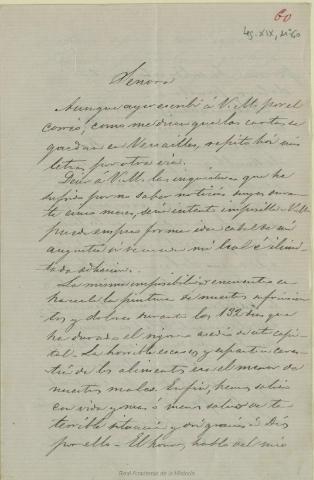 60
Leg. XIX, nº 60
Señora
Aunque ayer escribí á V.M. por el
correo, como me dicen que las cartas se
quedan en Versailles, repito hoy mis
letras por otra vía.
Decir á V.M. las inquietudes que he
sufrido por no saber noticias suyas duran
te cinco meses, sería intento imposible. V.M.
puede empero formar idea cabal de mi
angustia si recuerda mi leal é ilimi
tada adhesion.
La misma imposibilidad encuentro en
hacerle la pintura de nuestros sufrimien
tos y dolores durante los 132 dias que
ha durado el riguroso asedio de esta capi
tal. La horrible escasez y espantosa cares
tía de los alimentos era el menor de
nuestros males. En fin, hemos salido
con vida y mas ó menos salud de tan
terrible situacion y doy gracias á Dios
por ello. El honor, habla del mio
Real Academia de la Historia